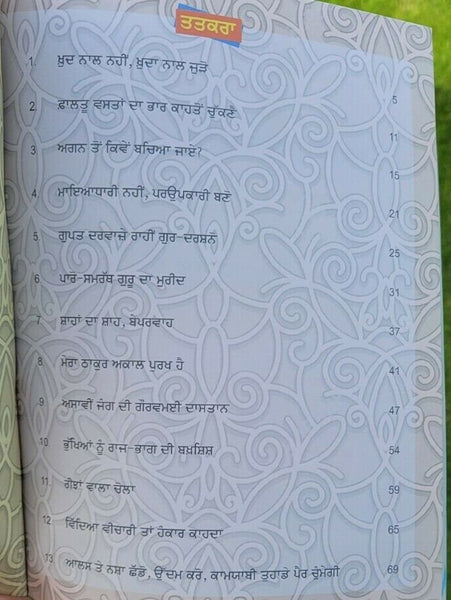 ਤਤਕਰਾ
1. ਖ਼ੁਦ ਨਾਲ ਨਹੀਂ, ਖ਼ੁਦਾ ਨਾਲ ਜੁੜੋ 5
2. ਫ਼ਾਲਤੂ ਵਸਤਾਂ ਦਾ ਭਾਰ ਕਾਹਤੋਂ ਚੁੱਕਣੈ 11
3. ਅਗਨ ਤੋਂ ਕਿਵੇਂ ਬਚਿਆ ਜਾਏ? 15
4. ਮਾਇਆਧਾਰੀ ਨਹੀਂ, ਪਰਉਪਕਾਰੀ ਬਣੋ 21
5. ਗੁਪਤ ਦਰਵਾਜ਼ੇ ਰਾਹੀਂ ਗੁਰ-ਦਰਸ਼ਨ 25
6. ਪਾਰੋ-ਸਮਰੱਥ ਗੁਰੂ ਦਾ ਮੁਰੀਦ 31
7. ਸ਼ਾਹਾਂ ਦਾ ਸ਼ਾਹ, ਬੇਪਰਵਾਹ 37
8. ਮੇਰਾ ਠਾਕੁਰ ਅਕਾਲ ਪੁਰਖ ਹੈ 41
9. ਅਸਾਵੀਂ ਜੰਗ ਦੀ ਗੌਰਵਮਈ ਦਾਸਤਾਨ 47
10. ਭੁੱਖਿਆਂ ਨੂੰ ਰਾਜ-ਭਾਗ ਦੀ ਬਖ਼ਸ਼ਿਸ਼ 54
11. ਗੰਢਾਂ ਵਾਲਾ ਚੋਲਾ 59
12. ਵਿੱਦਿਆ ਵੀਚਾਰੀ ਤਾਂ ਹੰਕਾਰ ਕਾਹਦਾ 65
13. ਆਲਸ ਤੇ ਨਸ਼ਾ ਛੱਡੋ, ਉੱਦਮ ਕਰੋ, ਕਾਮਯਾਬੀ ਤੁਹਾਡੇ ਪੈਰ ਚੁੰਮੇਗੀ 69